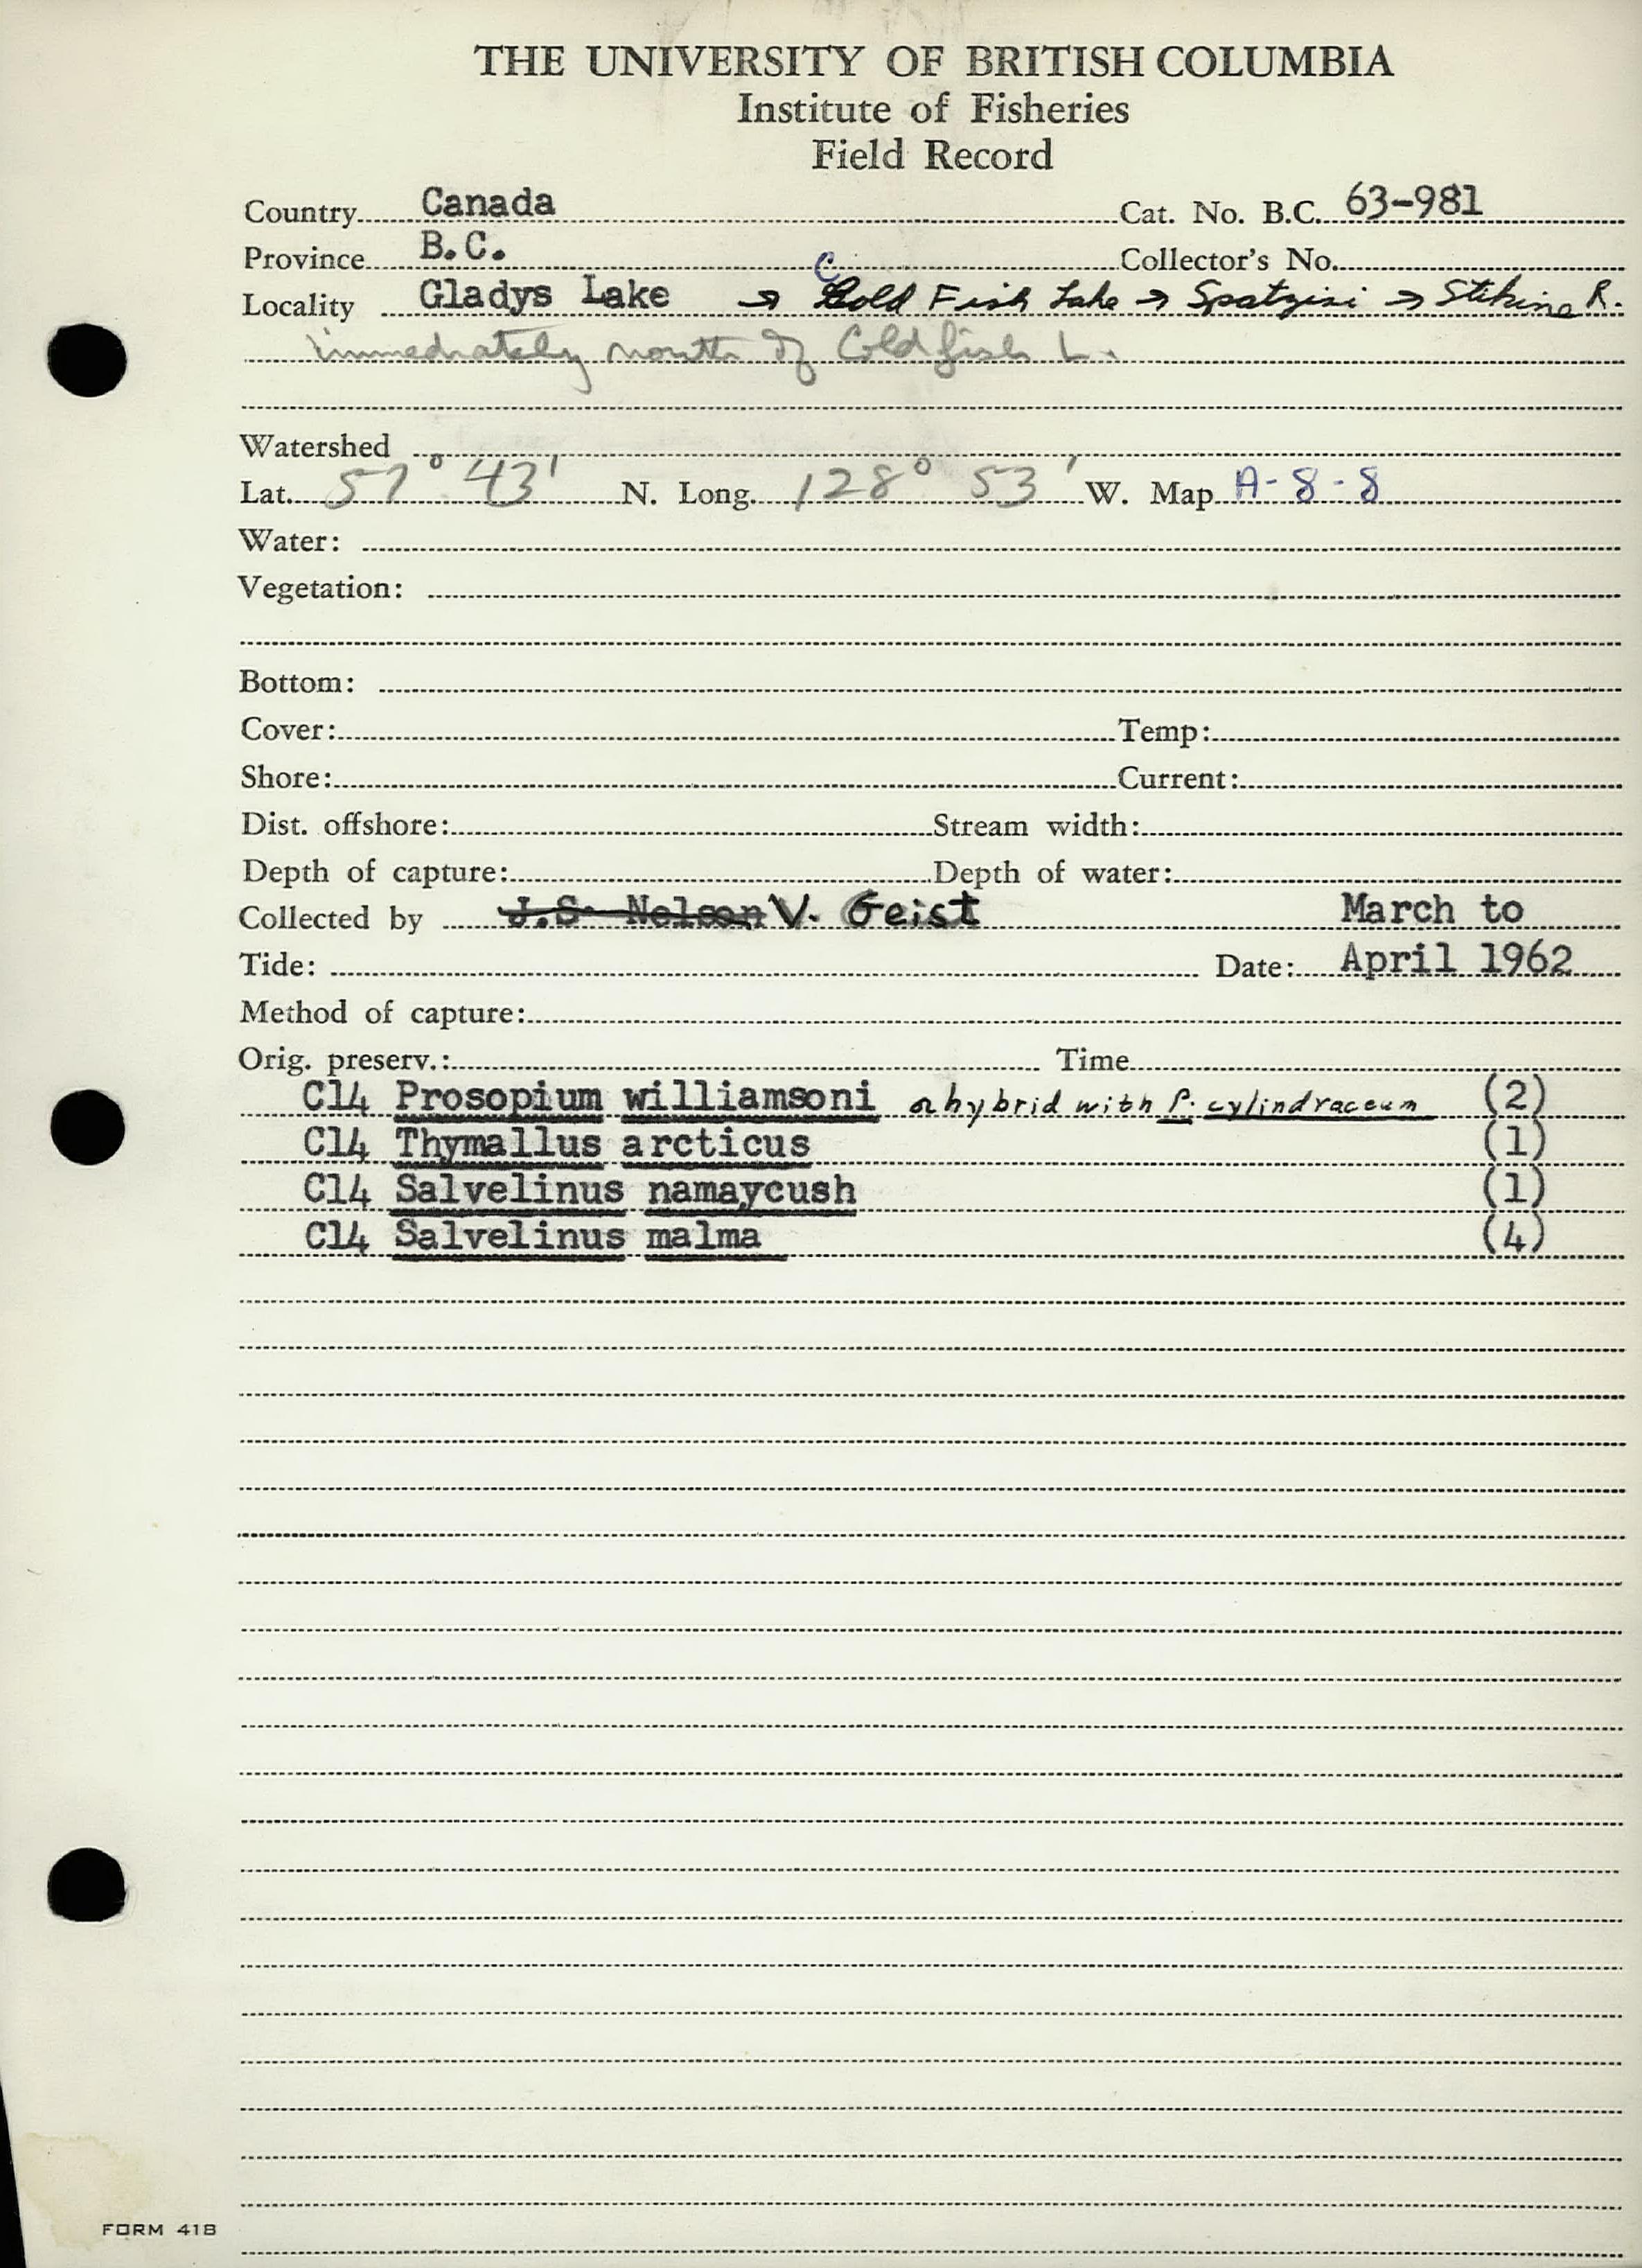 THE UNIVERSITY OF BRITISH COLUMBIA
Institute of Fisheries
Field Record
Country Canada Cat. No. B.C. 63-981
Province B.C. Collector's No.
Locality Gladys Lake → Cold Fish Lake → Spatzizi → Stikine R.
immediately north of Coldfish L.
Watershed
Lat. 57° 43' N. Long. 128° 53' W. Map A-8-8
Water:
Vegetation:
Bottom:
Cover: Temp:
Shore: Current:
Dist. offshore: Stream width:
Depth of capture: Depth of water:
Collected by J.S. Nelson V. Geist March to
Tide: Date: April 1962
Method of capture:
Orig. preserv.: Time
C14 Prosopium williamsoni hybrid with P. cylindraceum (2)
C14 Thymallus arcticus (1)
C14 Salvelinus namaycush (1)
C14 Salvelinus malma (4)
FORM 41B